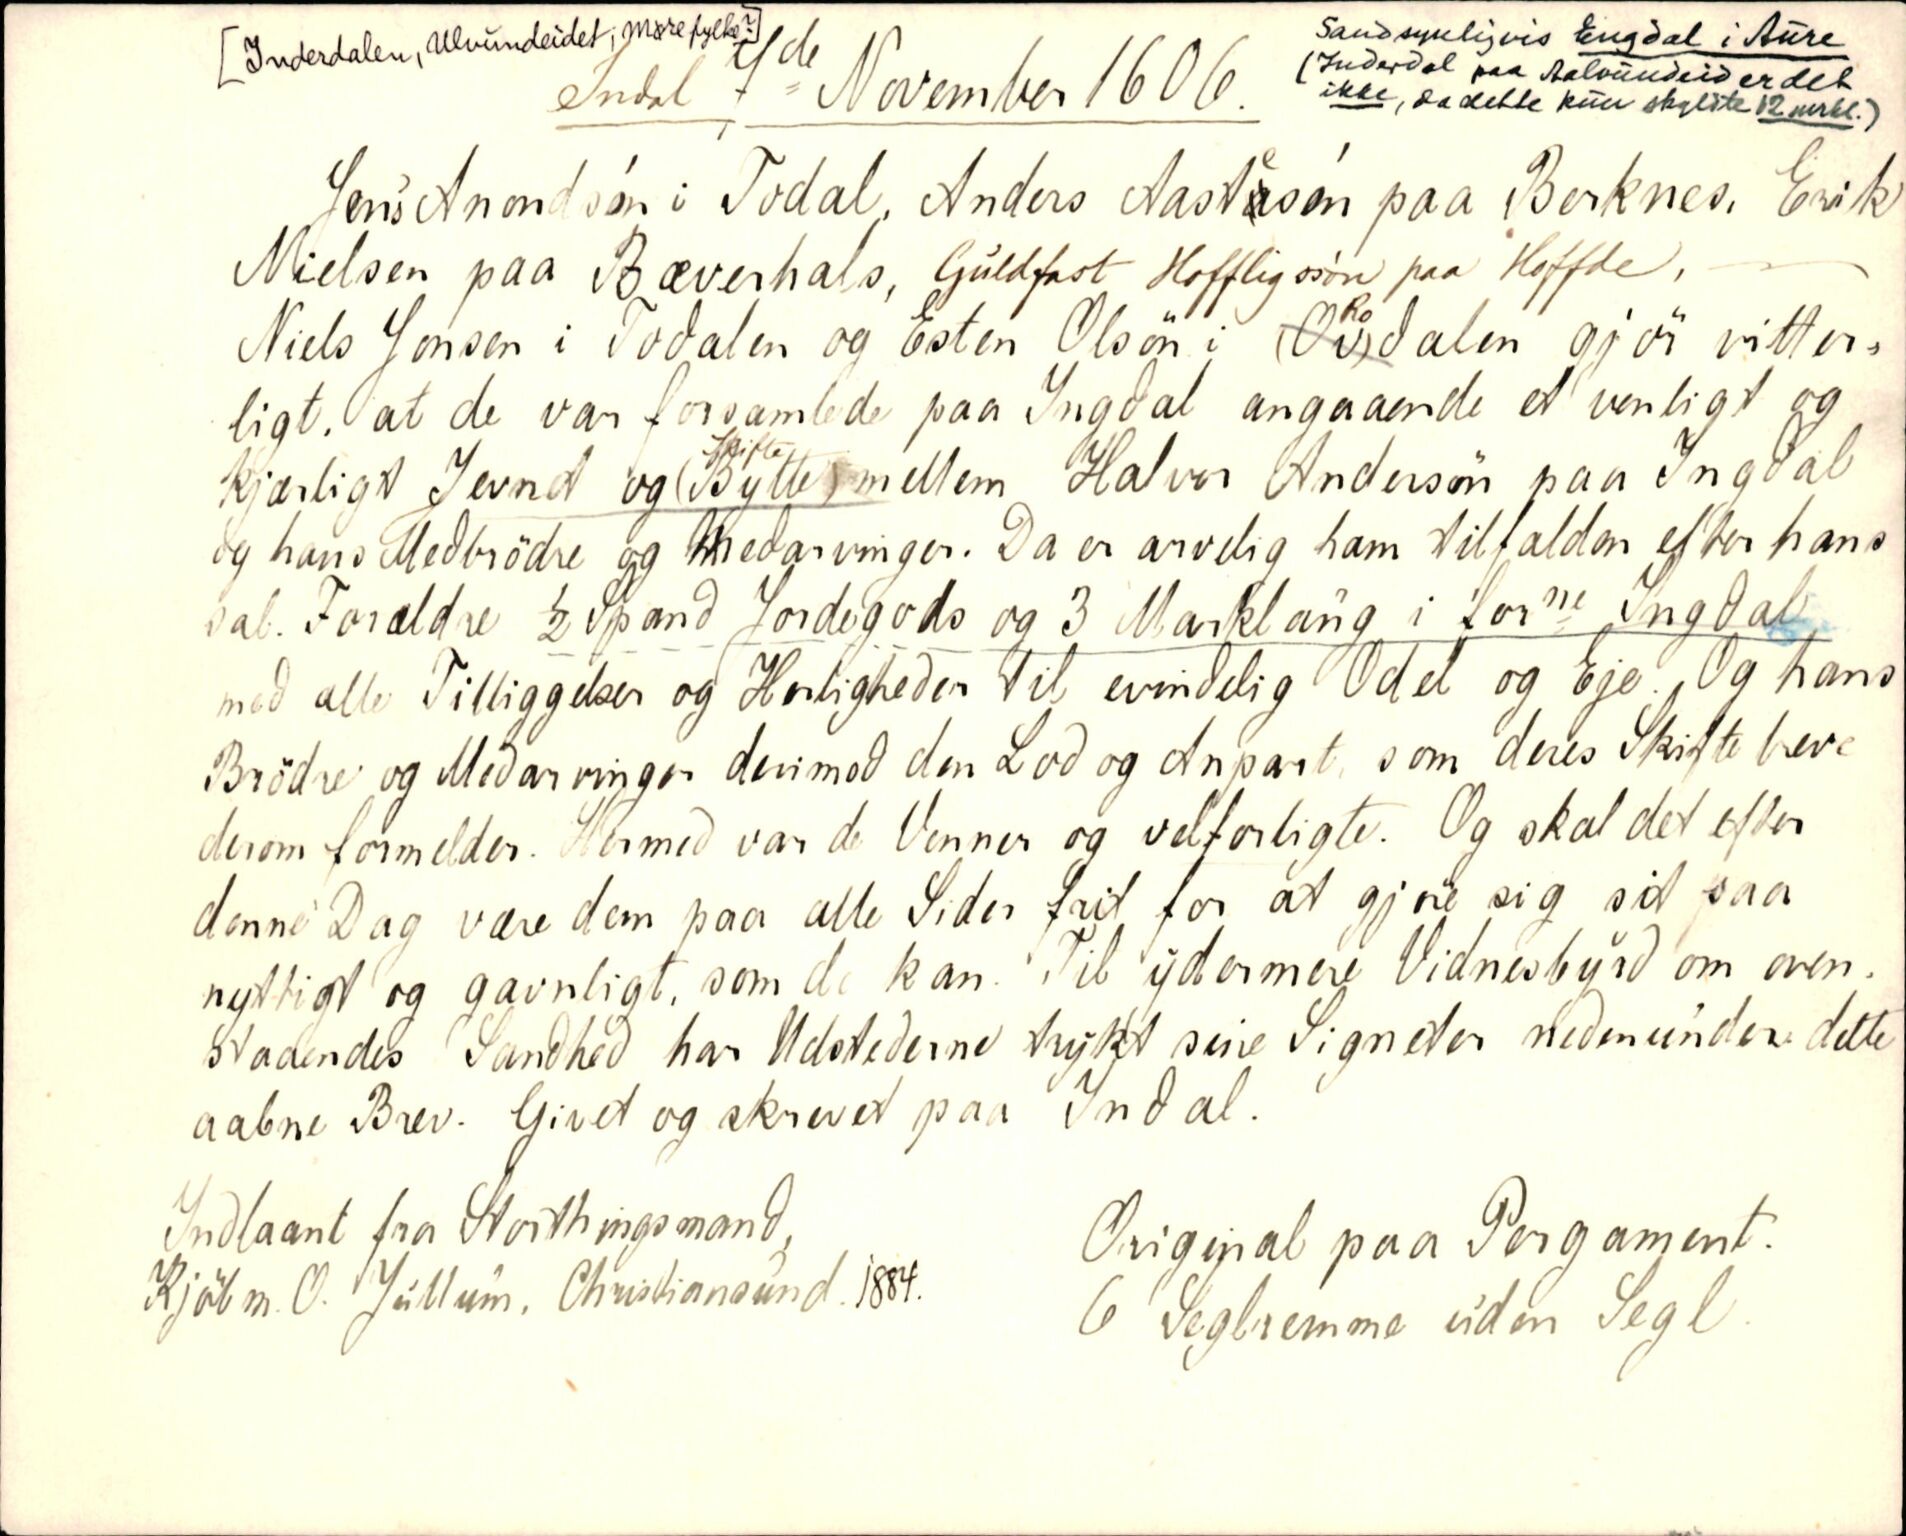 [Inderdalen, Ulvundeidet, Møre fylke?]
Sandsynligvis Engdal i Aure
(Inderdal paa Aalvundeid er det
ikke, da dette kun skylite 12 mrkl.)
Indal 7de November 1606.
Jens Anondsön i Todal, Anders Aastesön paa Berknes, Erik
Nielsen paa Bæverhals, Guldfast Hoffligssön paa Hoffde,
Niels Jonsen i Todalen og Esten Olsön i (Ov)Rodalen gjör vitter-
ligt, at de var forsamlede paa Ingdal angaaende et venligt og
kjærligt Jevnet og (Bytte) skifte mellem Halvor Andersön paa Ingdal
og hans Medbrödre og Medarvinger. Da er arvelig ham tilfalden efter hans
sal. Forældre ½ Spand Jordegods og 3 Marklaug i forne Ingdal
med alle Tilliggelser og Herligheder til evindelig Odel og Eje. Og hans
Brödre og Medarvinger derimod den Lod og Anpart, som deres Skiftebreve
derom formelder. Hermed var de Venner og velforligte. Og skal det efter
denne Dag være dem paa alle Sider frit for at gjöre sig sit saa
nyttigt og gavnligt, som de kan. Til ydermere Vidnesbyrd om oven-
staaendes Sandhed har Udstederne trykt sine Signeter nedenundere dette
aabne Brev. Givet og skrevet paa Indal.
Indlaant fra Storthingsmand,
Kjöbm. O. Jullum, Christiansund. 1884.
Original paa Pergament.
6 Seglremme uden Segl.